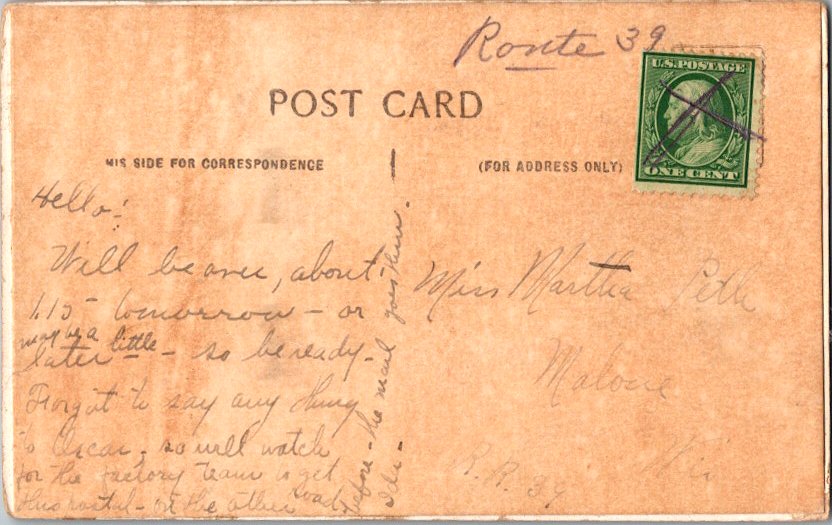 Route 39
U.S. POSTAGE
ONE CENT
POST CARD
HIS SIDE FOR CORRESPONDENCE
(FOR ADDRESS ONLY)
Hello!
Will be over, about
1.15 - tomorrow - or
may be a little
later - so be ready -
Forgot to say any thing
to Oscar - so will watch
for the factory team to get
this postal - on the other road
before - the mail goes thru.
Ida -
Miss Martha
Malone
Wis
R. R. 39